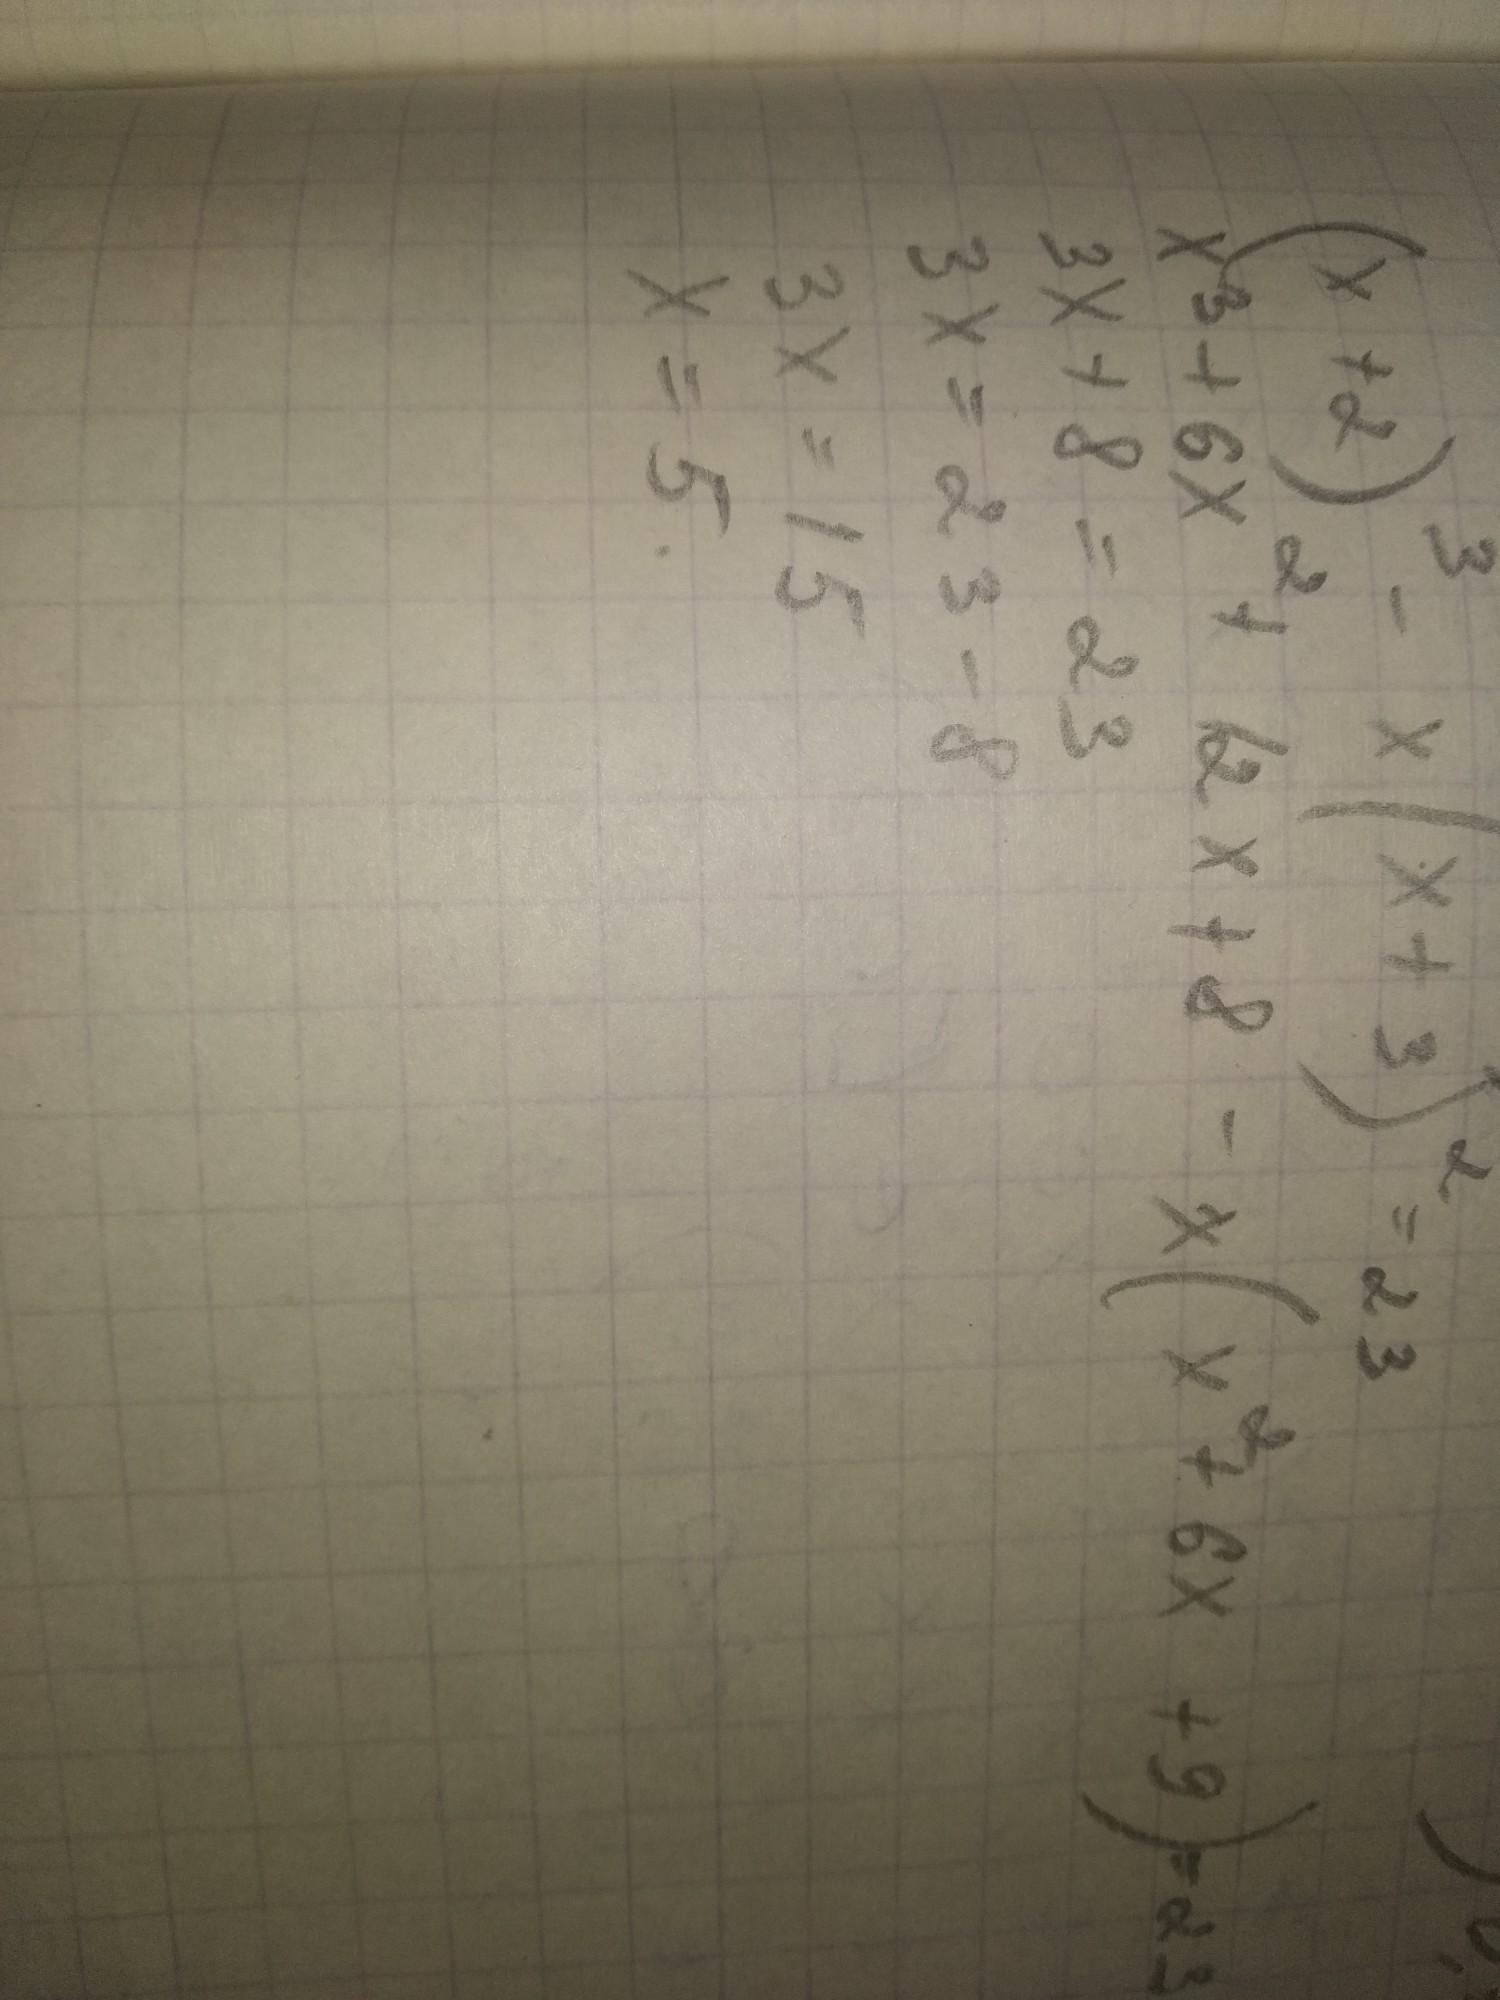 (x+2)³ - x(x+3)² = 23
x³+6x²+12x+8 - x(x²+6x+9)=23
3x+8 = 23
3x = 23-8
3x = 15
x = 5.